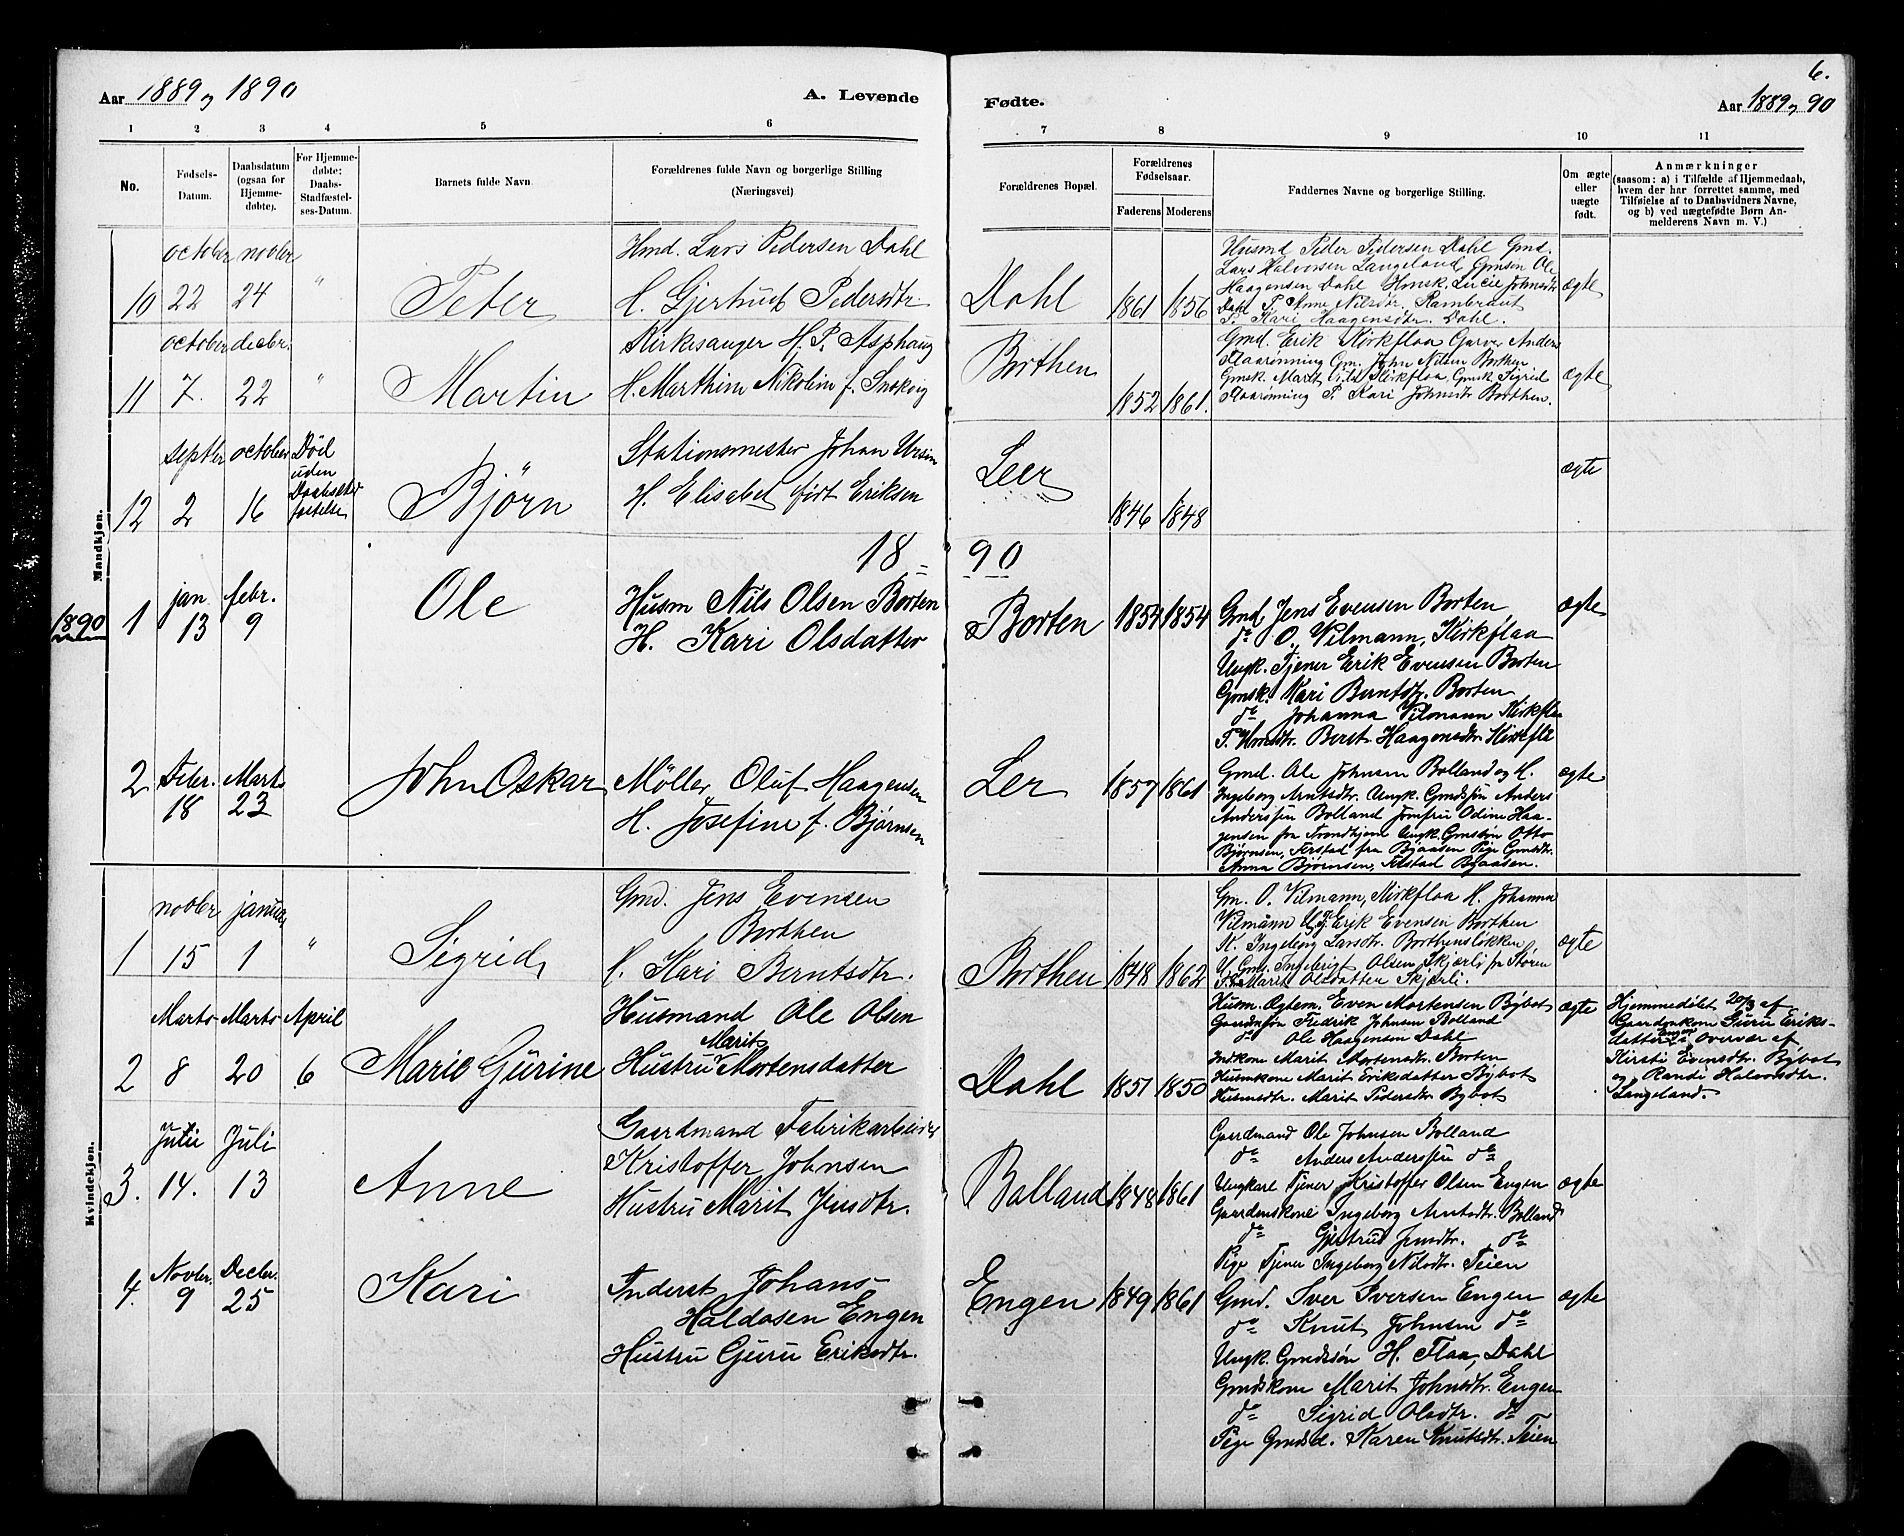 Aar 1889 og 1890
A. Levende
Fødte.
6.
Aar 1889 og 90
1 2 3 4 5 6 7 8 9 10 11
No.
Fødsels-
Datum.
Daabsdatum
(ogsaa for
Hjemme-
døbte).
For Hjemme-
døbte:
Daabs-
Stadfæstel-
ses-Datum.
Barnets fulde Navn.
Forældrenes fulde Navn og borgerlige Stilling
(Næringsvei).
Forældrenes Bopæl.
Forældrenes
Fødselsaar.
Faderens
Moderens
Faddernes Navne og borgerlige Stilling.
Om ægte
eller
uægte
født.
Anmærkninger
(saasom: a) i Tilfælde af Hjemmedaab,
hvem der har forrettet samme, med
Tilføielse af to Daabsvidners Navne,
og b) ved uægtefødte Børn An-
melderens Navn m. V.)
Mandkjøn.
10
october
22
novber
24
"
Peter
Hmd. Lars Pedersen Dahl
H. Gjertrud Pedersdtr.
Dahl
1861
1856
Husmd Peder Pedersen Dahl Gmd.
Lars Halvorsen Langeland Gmsøn Ole
Haagensen Dahl Honsk. Lucie Johnsdtr
Dahl P. Anne Nilsdtr. Rambraut
P. Kari Haagensdtr. Dahl.
ægte
11
october
7.
decbr.
22
"
Martin
Kirkesanger H. P. Asphaug
H. Marthine Nikoline f. Snekvig
Borthen
1852
1861.
Gmd. Erik Kirkflaa Garver Anders
Flaarønning Gm. John Nilsen Borthen
Gmsk. Marit Kirkflaa, Gmsk. Sigrid
Flaarønning P. Kari Johnsdtr Borthen.
ægte
12
septbr
2
october
16
Död
uden
Daabsstad
festelse
Björn
Stationsmester Johan Ursin
H. Elisabet født Eriksen
Leer
1846
1848
ægte
18 90
1890
1
jan
13
febr.
9
Ole
Husm Nils Olsen Borten
H. Kari Olsdatter
Borten
1854
1854
Gmd Jens Evensen Borten
do O. Vilmann, Kirkflaa
Ungk. Tjener Erik Evensen Borten
Gmsk. Kari Berntsdtr. Borten
do Johanna Vilmann Kirkflaa
P. Hmdtr. Berit Haagensdtr Kirkfla
ægte
2
Febr.
18
Marts
23
John Oskar
Møller Oluf Haagensen
H. Josefine f. Bjørnsen
Ler
1857
1861
Gmd. Ole Johnsen Bolland og H.
Ingeborg Arntsdtr. Ungk. Gmdssøn Anders
Andersen Bolland Jomfru Odine Haa-
gensen fra Trondhjem Ungk. Gmssøn Otto
Bjørnsen, Ferstad fra Byaasen Pige Gmsdtr.
Anna Bjørnsen, Ferstad Byaasen.
ægte
Kvindekjøn.
1
novber
15
januar
1
"
Sigrid
Gmd. Jens Evensen
Borthen
H. Kari Berntsdtr.
Borthen
1848
1862
Gm. O. Vilmann, Kirkflaa H. Johanna
Vilmann Erik Evensen Borthen
K. Ingeborg Larsdtr. Borthensløkken
U. Gms. Ingebrigt Olsen Skjærli fra Støren
Marit Olsdatter Skjærli.
ægte
2
Marts
8
Marts
20
April
6
Marie Gurine
Husmand Ole Olsen
Hustru Marit Mortensdatter
Dahl
1851
1850
Husm. Even Mortensen Bybot
Gaardssøn Fredrik Johnsen Bolland
do Ole Haagensen Dahl
Indkone Marit Mortensdtr. Borten
Huskone Marit Eriksdatter Bybot
Husmdtr. Marit Pedersdtr Bybot
ægte
Hjemmedöbt 20/3 af
Gaardmkone Guru Eriks-
datter Engen i Overvær af
Kirsti Evensdtr. Bybot
og Randi Halvorsdtr.
Langeland.
3.
Juni
14.
Juli
13
Anne
Gaardmand Fabrikarbeider
Kristoffer Johnsen
Hustru Marit Jensdtr.
Bolland
1848
1861
Gaardmand Ole Johnsen Bolland
do Anders Andersen do
Ungkarl Tjener Kristoffer Olsen Engen
Gaardmskone Ingeborg Arntsdtr. Bolland
do Gjertrud Jensdtr. do
Pige Tjener Ingeborg Nilsdtr. Teien
ægte
4.
Novbr.
9
Decbr.
25
Kari
Inderst Johans
Haldosen Engen
Hustru Guru Eriksdtr.
Engen
1849
1861
Gmd. Iver Iversen Engen
do Knut Johnsen do
Ungk. Gmdssøn H. Flaa, Dahl
Gmdskone Marit Johnsdtr. Engen
do Sigrid Olsdtr. do
Pige Gmdsd. Karen Knutsdtr. Teien
ægte